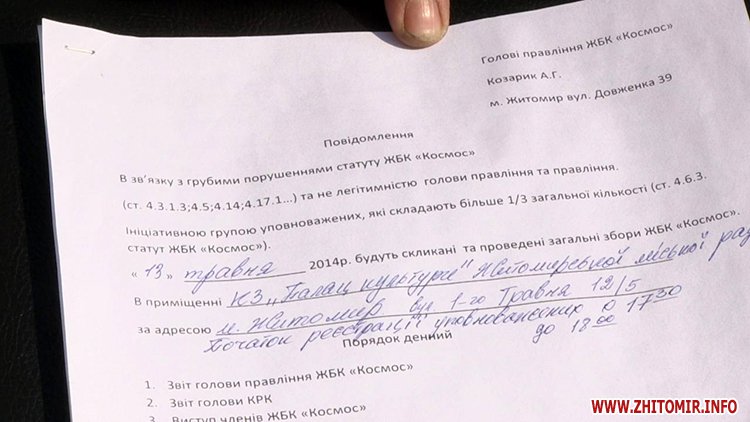 Голові правління ЖБК «Космос»
Козарик А.Г.
м. Житомир вул. Довженка 39
Повідомлення
В зв'язку з грубими порушеннями статуту ЖБК «Космос»
(ст. 4.3.1.3;4.5;4.14;4.17.1...) та не легітимністю голови правління та правління.
Ініціативною групою уповноважених, які складають більше 1/3 загальної кількості (ст. 4.6.3.
статут ЖБК «Космос»).
« 13 » травня 2014р. будуть скликані та проведені загальні збори ЖБК «Космос».
В приміщенні КЗ „Палац культури" Житомирської міської рад
за адресою м. Житомир вул 1-го Травня 12/5
Початок реєстрації уповноважених о 17 30
до 18 00
Порядок денний
1. Звіт голови правління ЖБК «Космос»
2. Звіт голови КРК
3. Виступ членів ЖБК «Космос»
WWW.ZHITOMIR.INFO